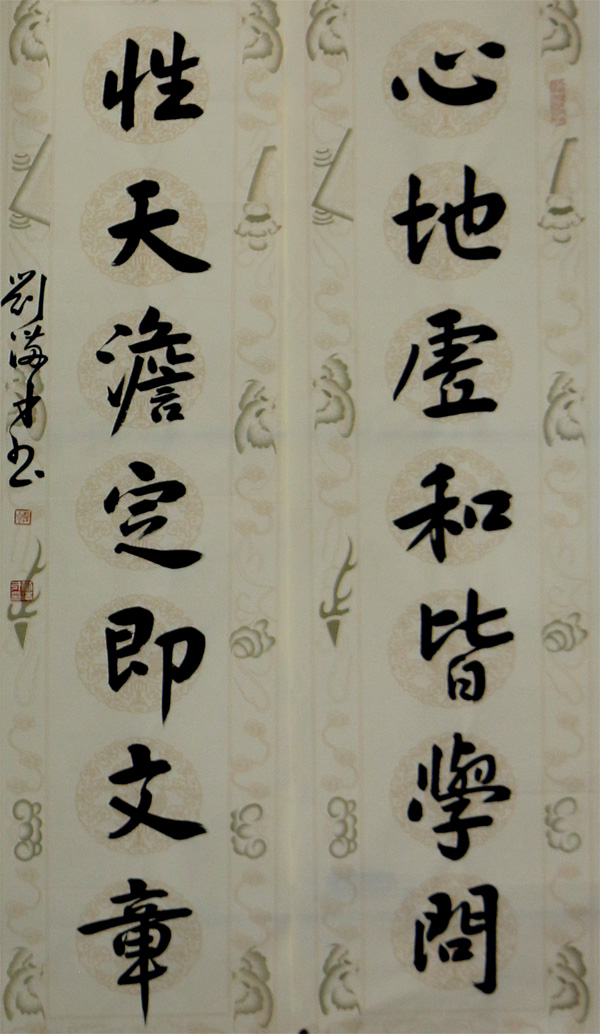 心地虛和皆學問
性天澹定即文章
劉滿才书